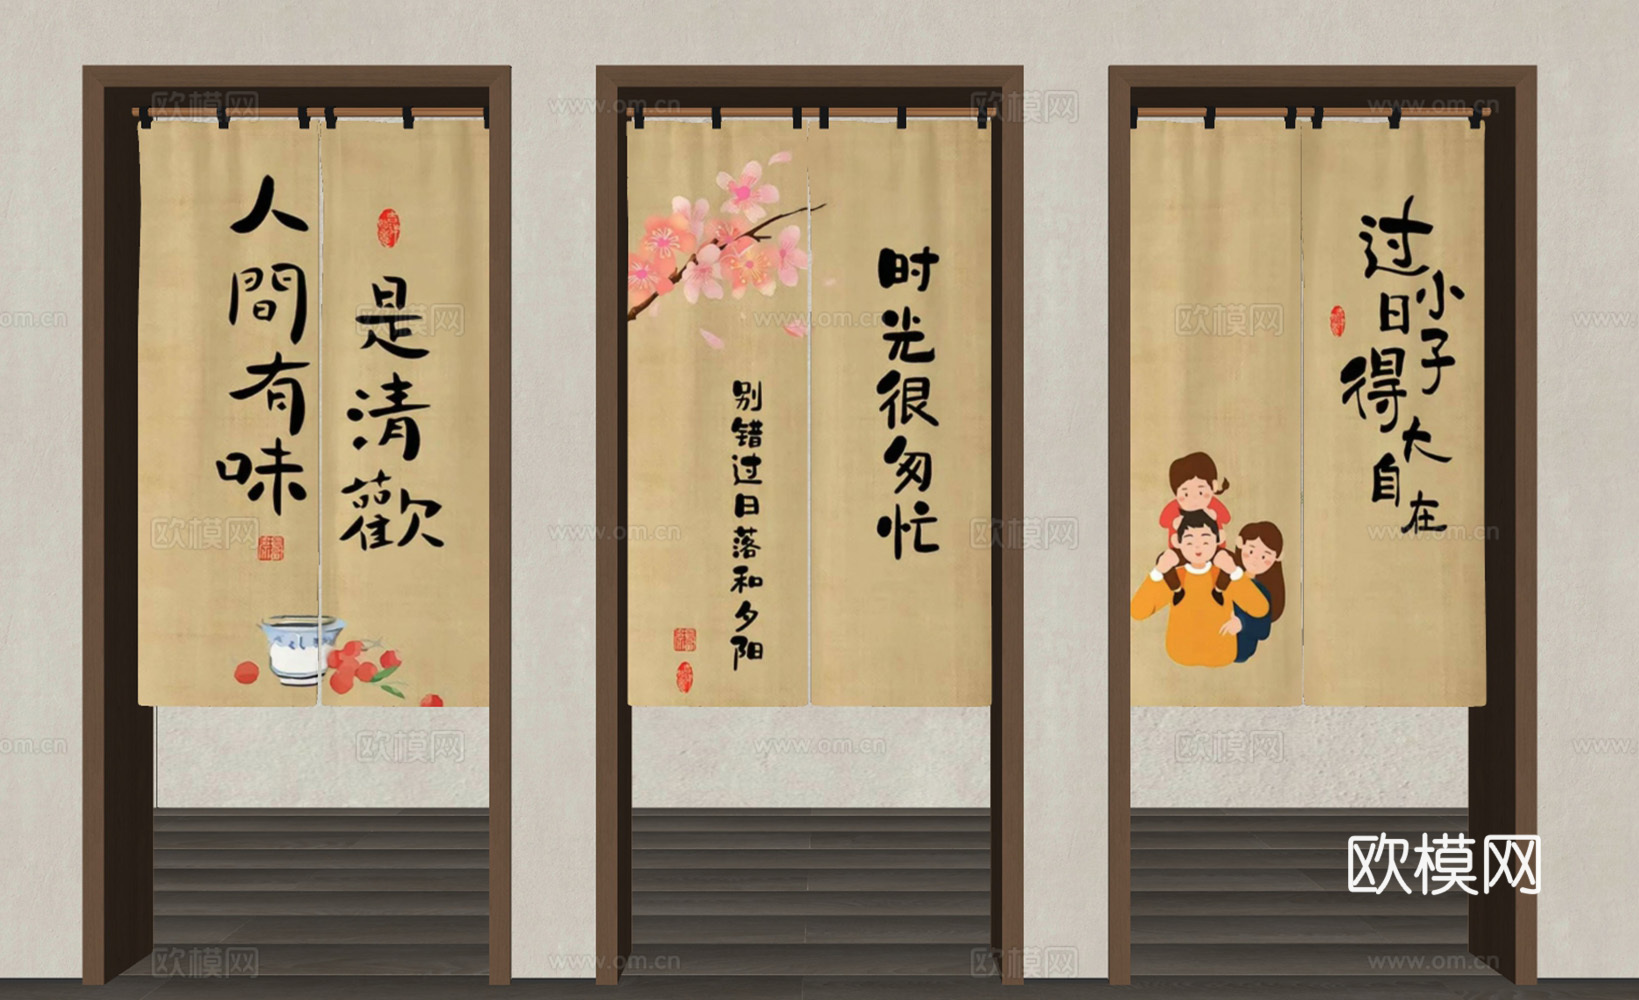 人間有味
是清歡
时光很匆忙
别错过日落和夕阳
过小日子得大自在
欧模网
www.om.cn